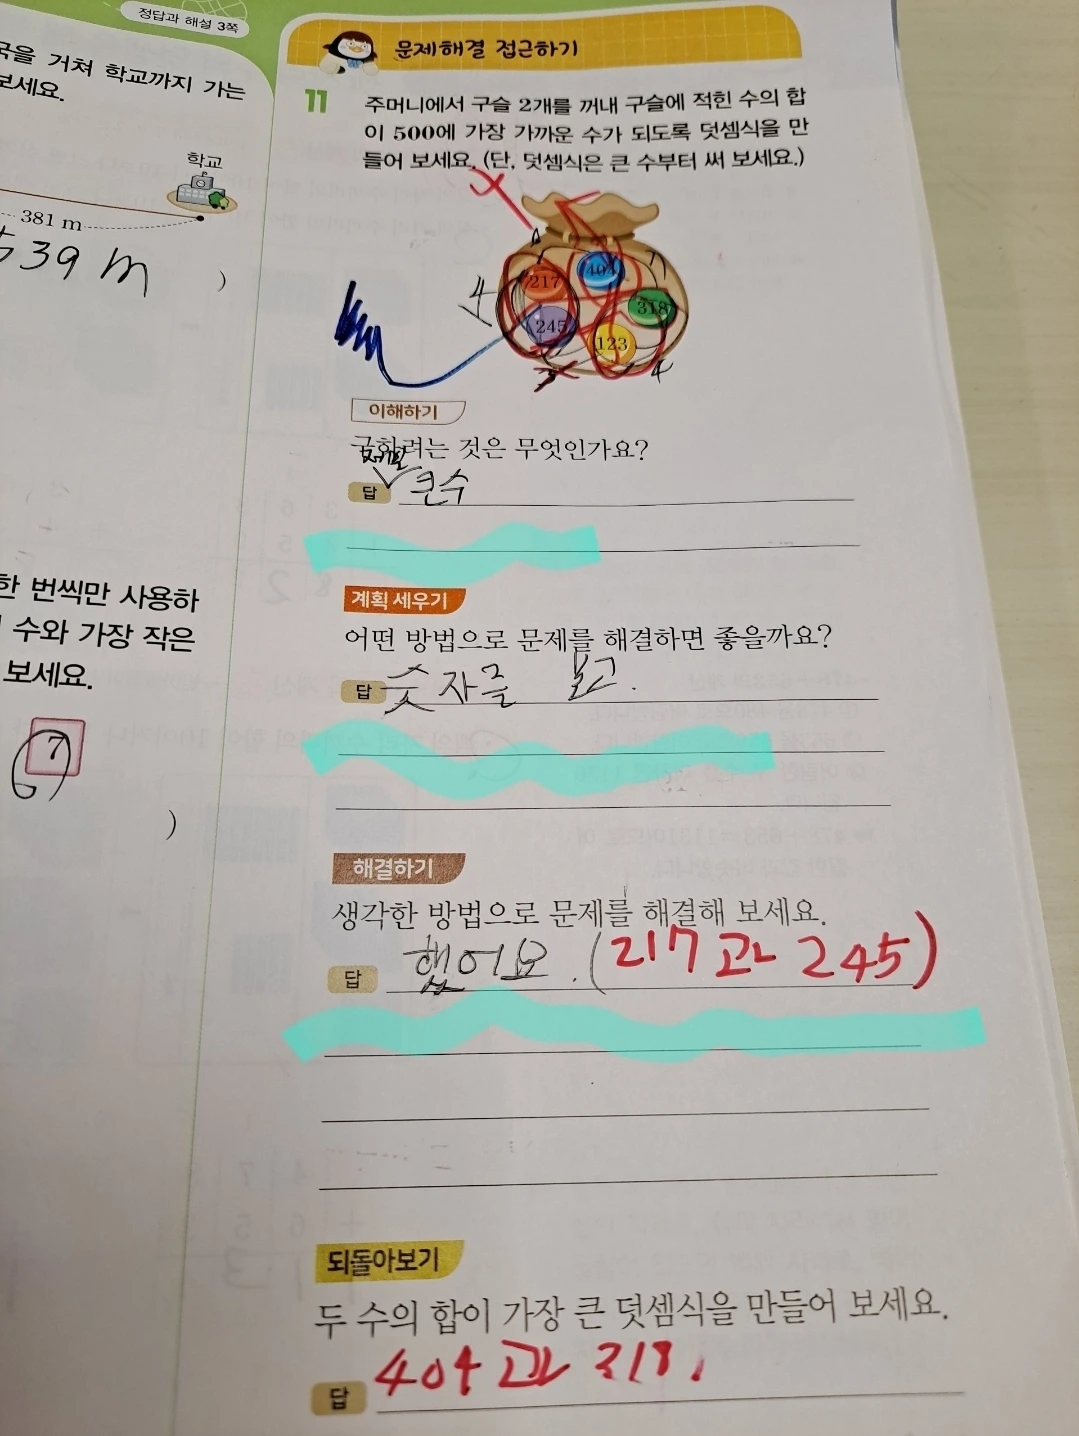 정답과 해설 3쪽
국을 거쳐 학교까지 가는
보세요.
학교
381 m
539 m
)
한 번씩만 사용하
수와 가장 작은
보세요.
7
)
문제해결 접근하기
11
주머니에서 구슬 2개를 꺼내 구슬에 적힌 수의 합
이 500에 가장 가까운 수가 되도록 덧셈식을 만
들어 보세요. (단, 덧셈식은 큰 수부터 써 보세요.)
217
404
318
245
123
4
7
4
이해하기
구하려는 것은 무엇인가요?
답 큰수
계획 세우기
어떤 방법으로 문제를 해결하면 좋을까요?
답 숫자를 보고.
해결하기
생각한 방법으로 문제를 해결해 보세요.
답 했어요. (217과 245)
되돌아보기
두 수의 합이 가장 큰 덧셈식을 만들어 보세요.
답 404과 318,